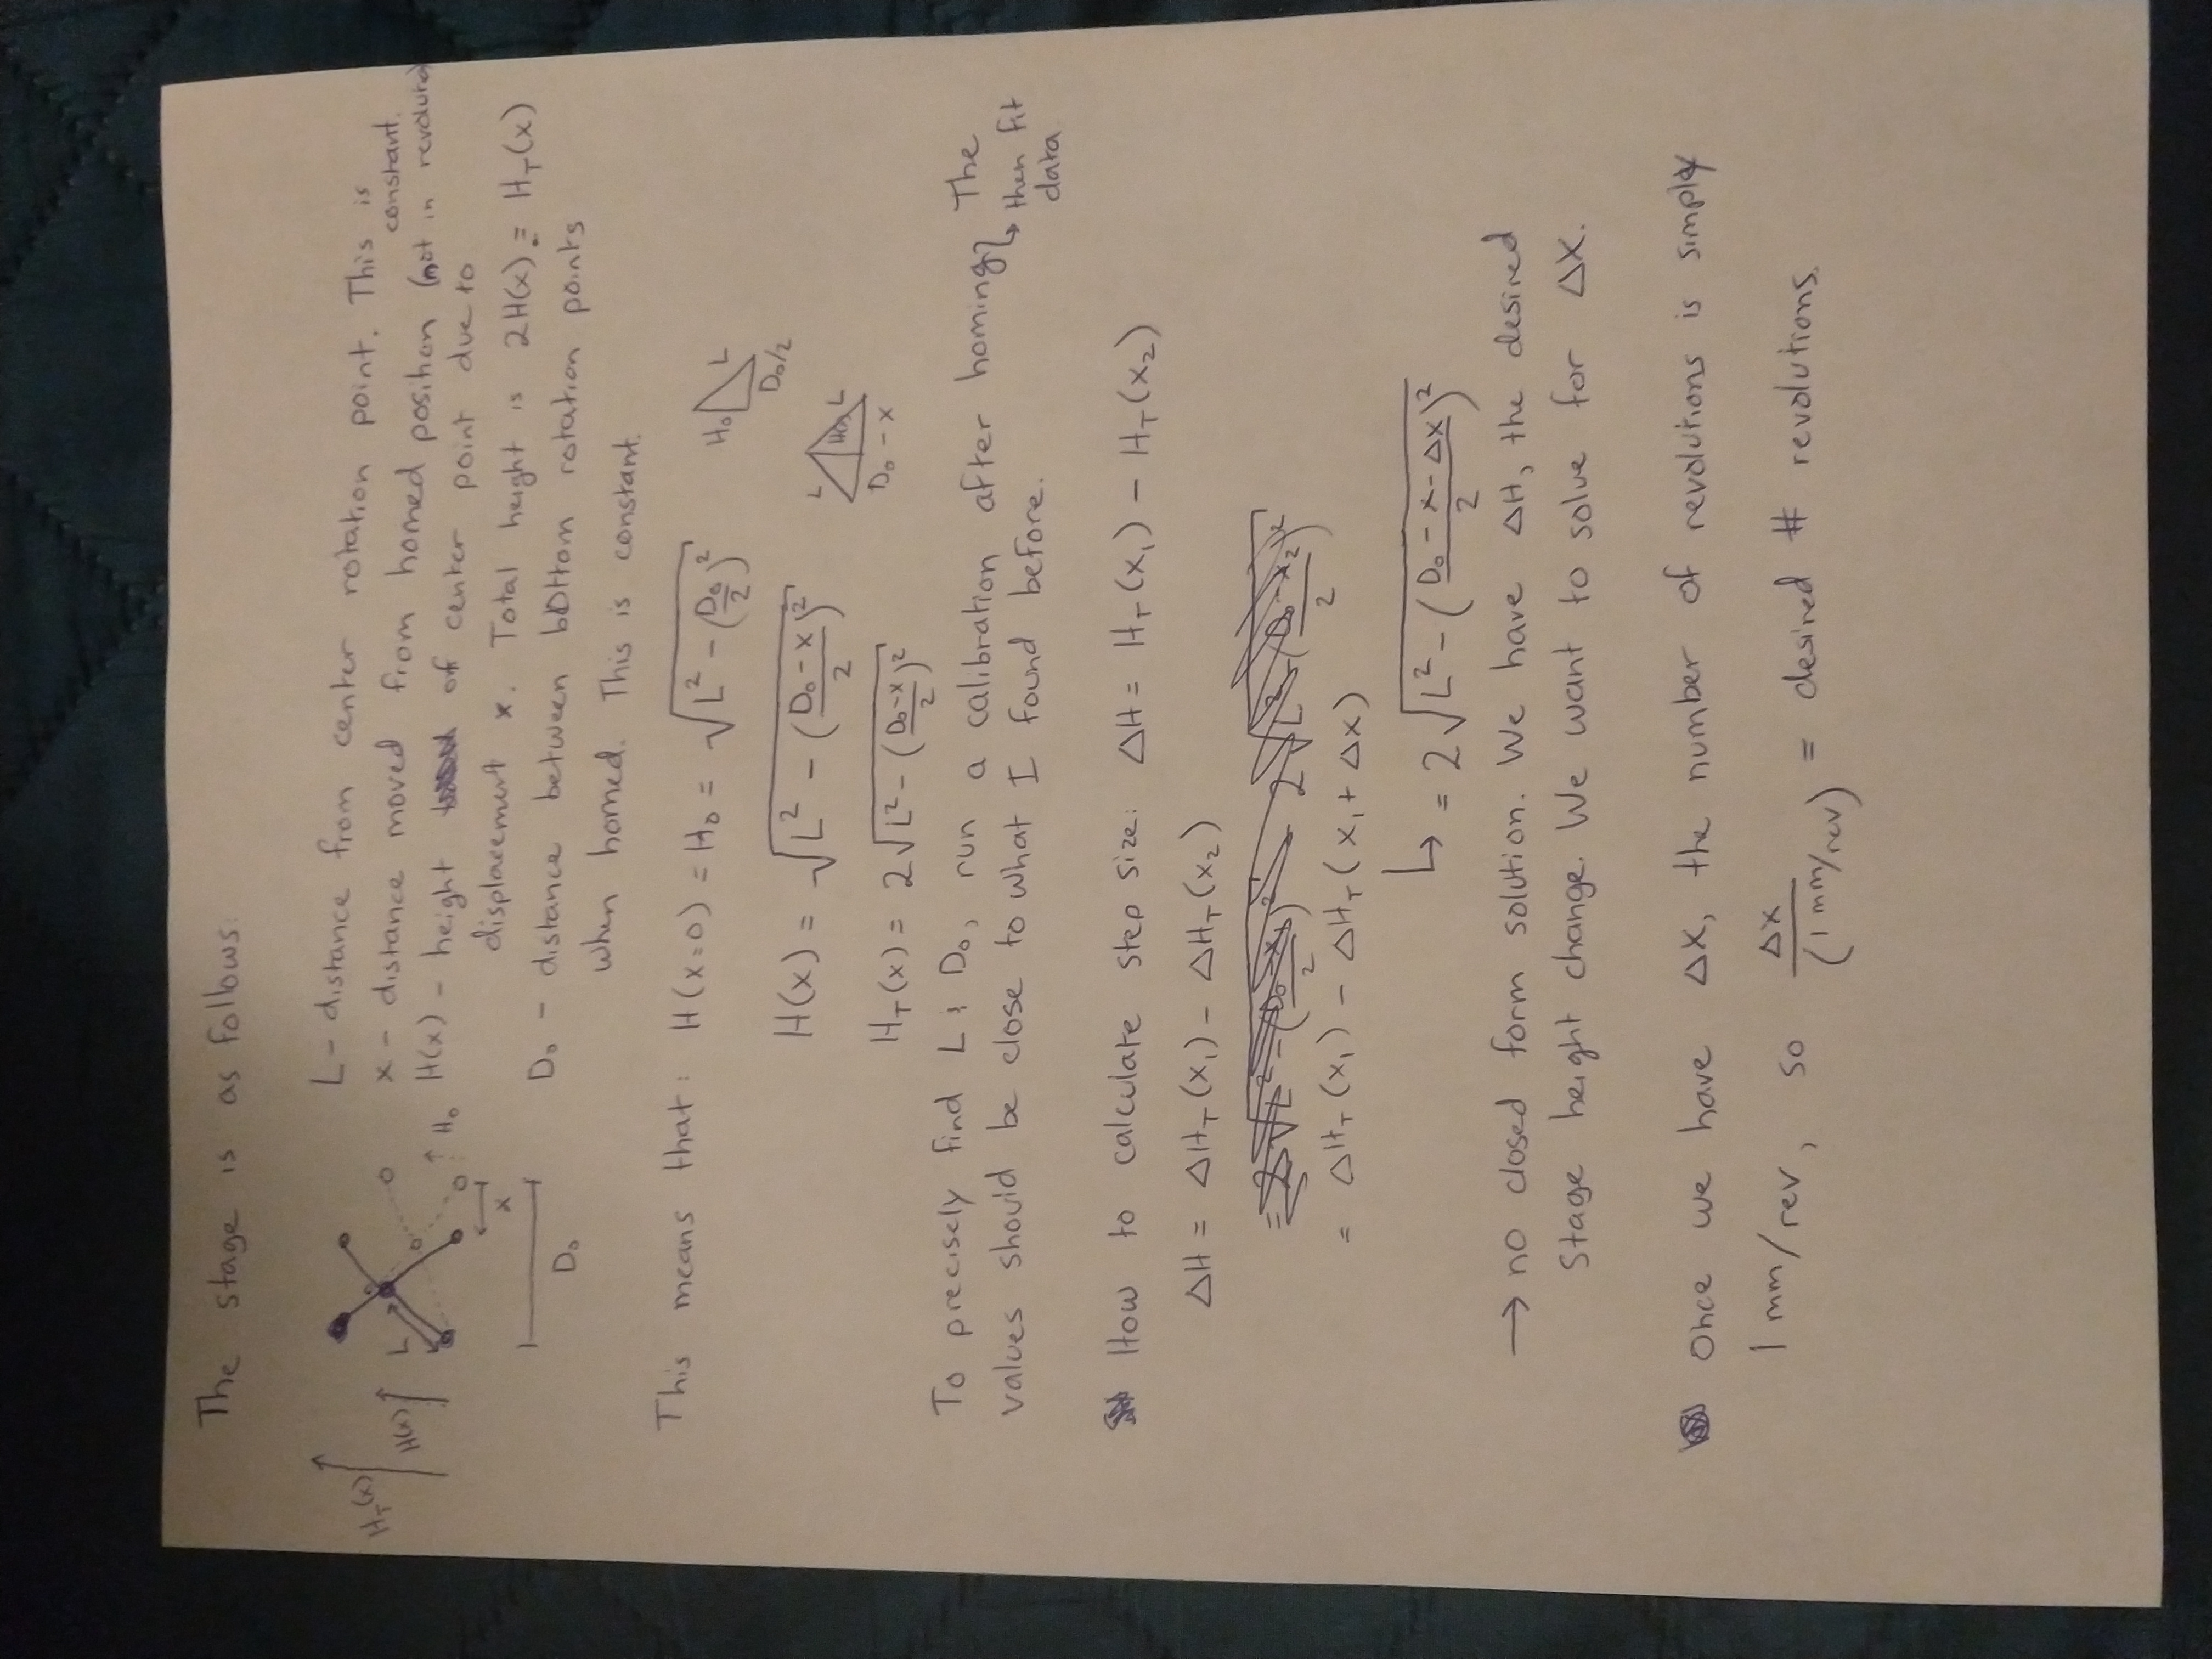 The stage is as follows:
H_T(x)
H(x)
L
H₀
x
D₀
L - distance from center rotation point. This is constant.
x - distance moved from homed position (not in revolutions)
H(x) - height of center point due to
displacement x. Total height is 2H(x) = H_T(x)
D₀ - distance between bottom rotation points
when homed. This is constant.
This means that: H(x=0) = H₀ = √(L² - (D₀/2)²)
H₀ L
D₀/2
H(x) = √(L² - ((D₀-x)/2)²)
L H(x) L
D₀ - x
H_T(x) = 2√(L² - ((D₀-x)/2)²)
To precisely find L & D₀, run a calibration after homing, The
↳ then fit data
values should be close to what I found before.
How to calculate step size: ΔH = H_T(x₁) - H_T(x₂)
ΔH = ΔH_T(x₁) - ΔH_T(x₂)
= 2√(L² - ((D₀-x₁)/2)²) 2√(L² - ((D₀-x₂)/2)²)
= ΔH_T(x₁) - ΔH_T(x₁ + Δx)
↳ = 2√(L² - ((D₀-x-Δx)/2)²)
→ no closed form solution. We have ΔH, the desired
stage height change. We want to solve for Δx.
Once we have Δx, the number of revolutions is simply
1 mm/rev, so Δx/(1 mm/rev) = desired # revolutions.